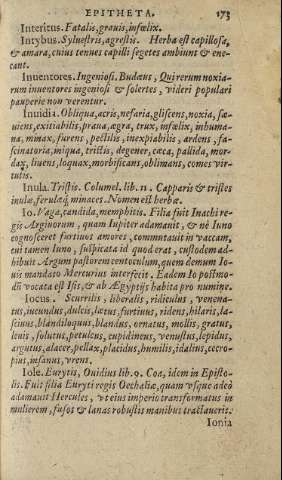 EPITHETA. 173
Interitus. Fatalis, grauis, infœlix.
Intybus. Syluestris, agrestis. Herba est capillosa,
& amara, cuius tenues capilli segetes ambiunt & ene-
cant.
Inuentores. Ingeniosi. Budæus, Qui rerum noxia-
rum inuentores ingeniosi & solertes, videri populari
pauperie non verentur.
Inuidia. Obliqua, acris, nefaria, gliscens, noxia, sæ-
uiens, exitiabilis, praua, ægra, trux, infœlix, inhuma-
na, minax, furens, pestilis, inexpiabilis, ardens, fa-
scinatoria, iniqua, tristis, degener, cæca, pallida, mor-
dax, liuens, loquax, morbificans, oblimans, comes vir-
tutis.
Inula. Tristis. Columel. lib. 11. Capparis & tristes
inulæ, ferulæq; minaces. Nomen est herbæ.
Io. Vaga, candida, memphitis. Filia fuit Inachi re-
gis Argiuorum, quam Iupiter adamauit, & nè Iuno
cognosceret furtiuos amores, commutauit in vaccam,
cui tamen Iuno, suspicata id quod erat, custodem ad-
hibuit Argum pastorem centoculum, quem demum Io-
uis mandato Mercurius interfecit. Eadem Io postmo-
dũ vocata est Isis, & ab Ægyptijs habita pro numine.
Iocus. Scurrilis, liberalis, ridiculus, venena-
tus, iucundus, dulcis, lætus, furtiuus, ridens, hilaris, la-
sciuus, blandiloquus, blandus, ornatus, mollis, gratus,
leuis, solutus, petulcus, cupidineus, venustus, lepidus,
argutus, alacer, pellax, placidus, humilis, idalius, cecro-
pius, insanus, vrens.
Iole. Eurytis, Ouidius lib. 9. Coa, idem in Episto-
lis. Fuit filia Euryti regis Oechaliæ, quam vsque adeò
adamauit Hercules, vt eius imperio transformatus in
mulierem, fusos & lanas robustis manibus tractauerit.
Ionia